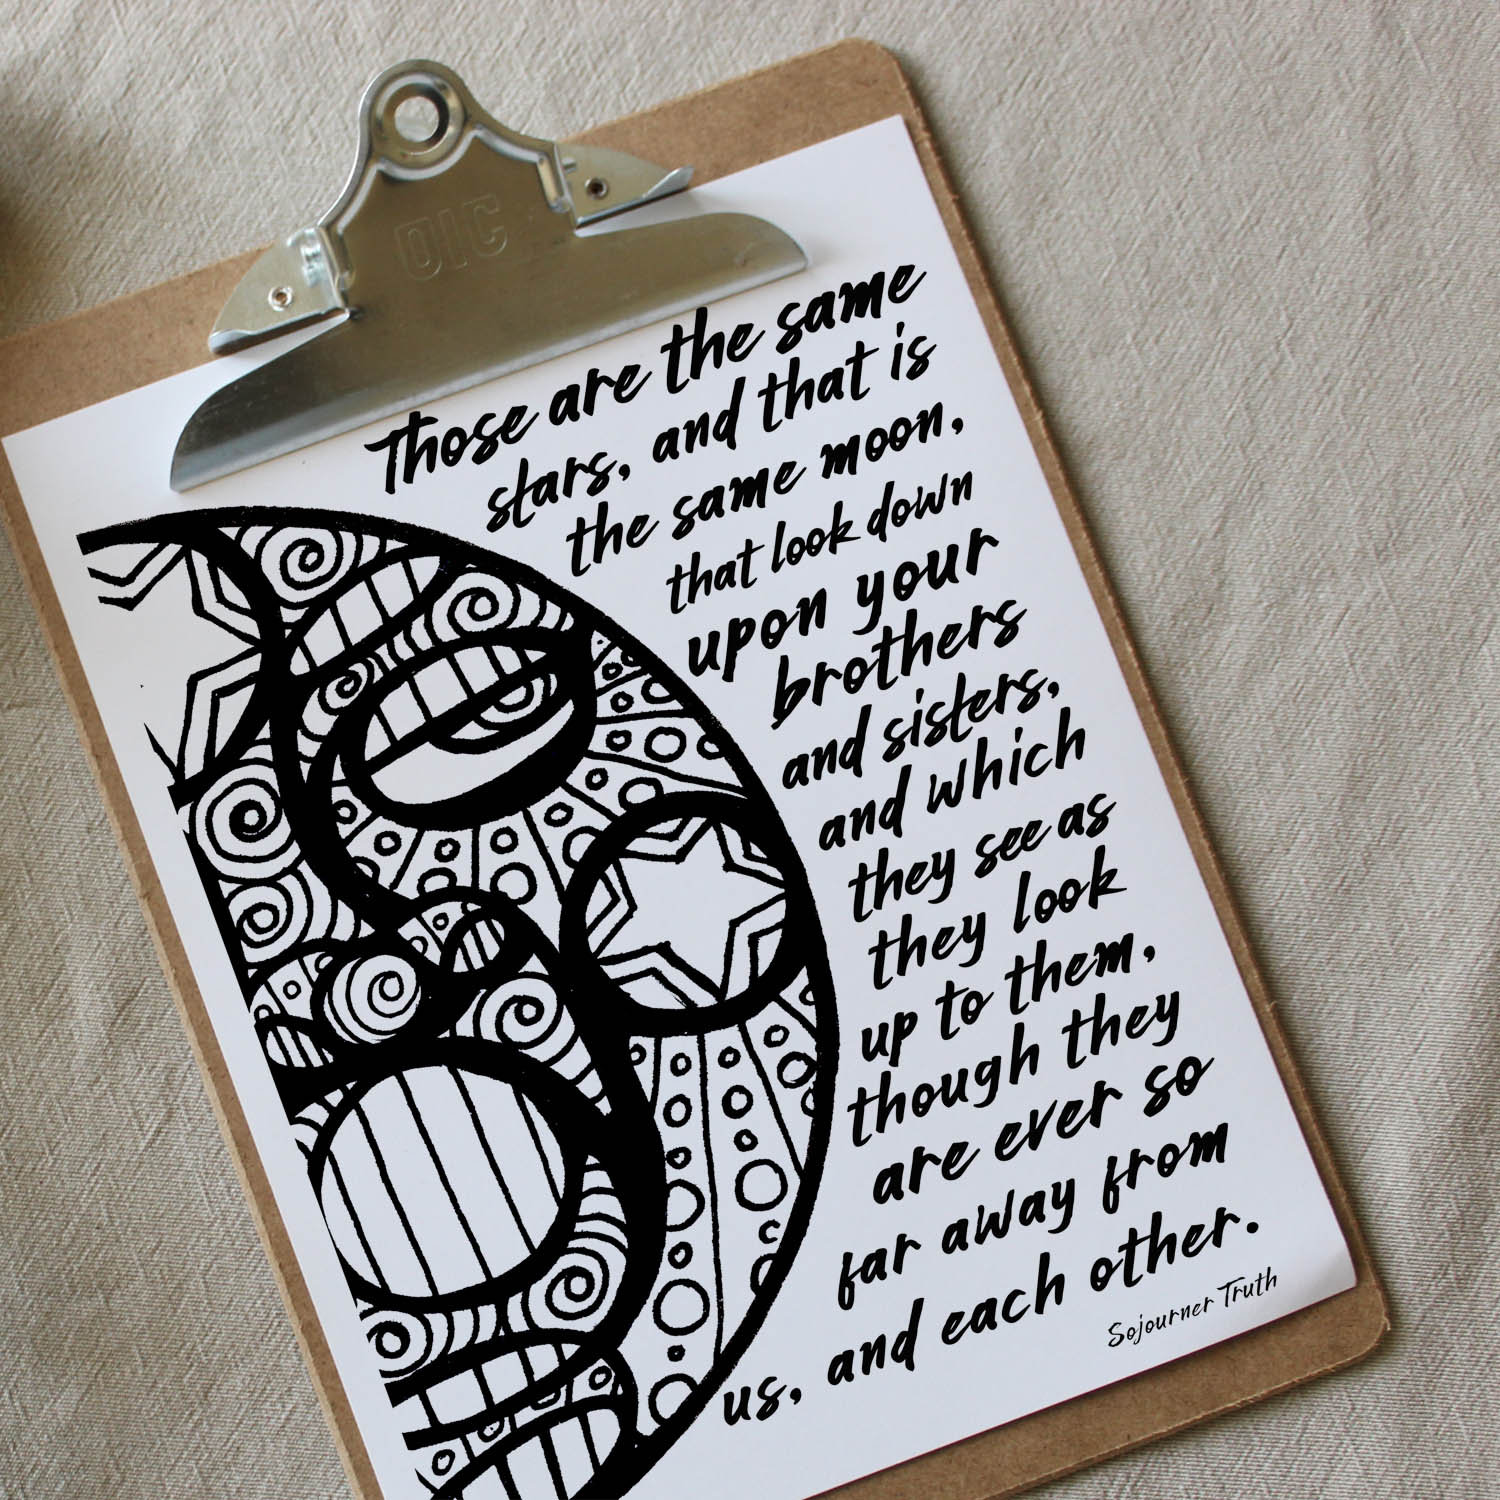 OIC
Those are the same
stars, and that is
the same moon,
that look down
upon your
brothers
and sisters,
and which
they see as
they look
up to them,
though they
are ever so
far away from
us, and each other.
Sojourner Truth